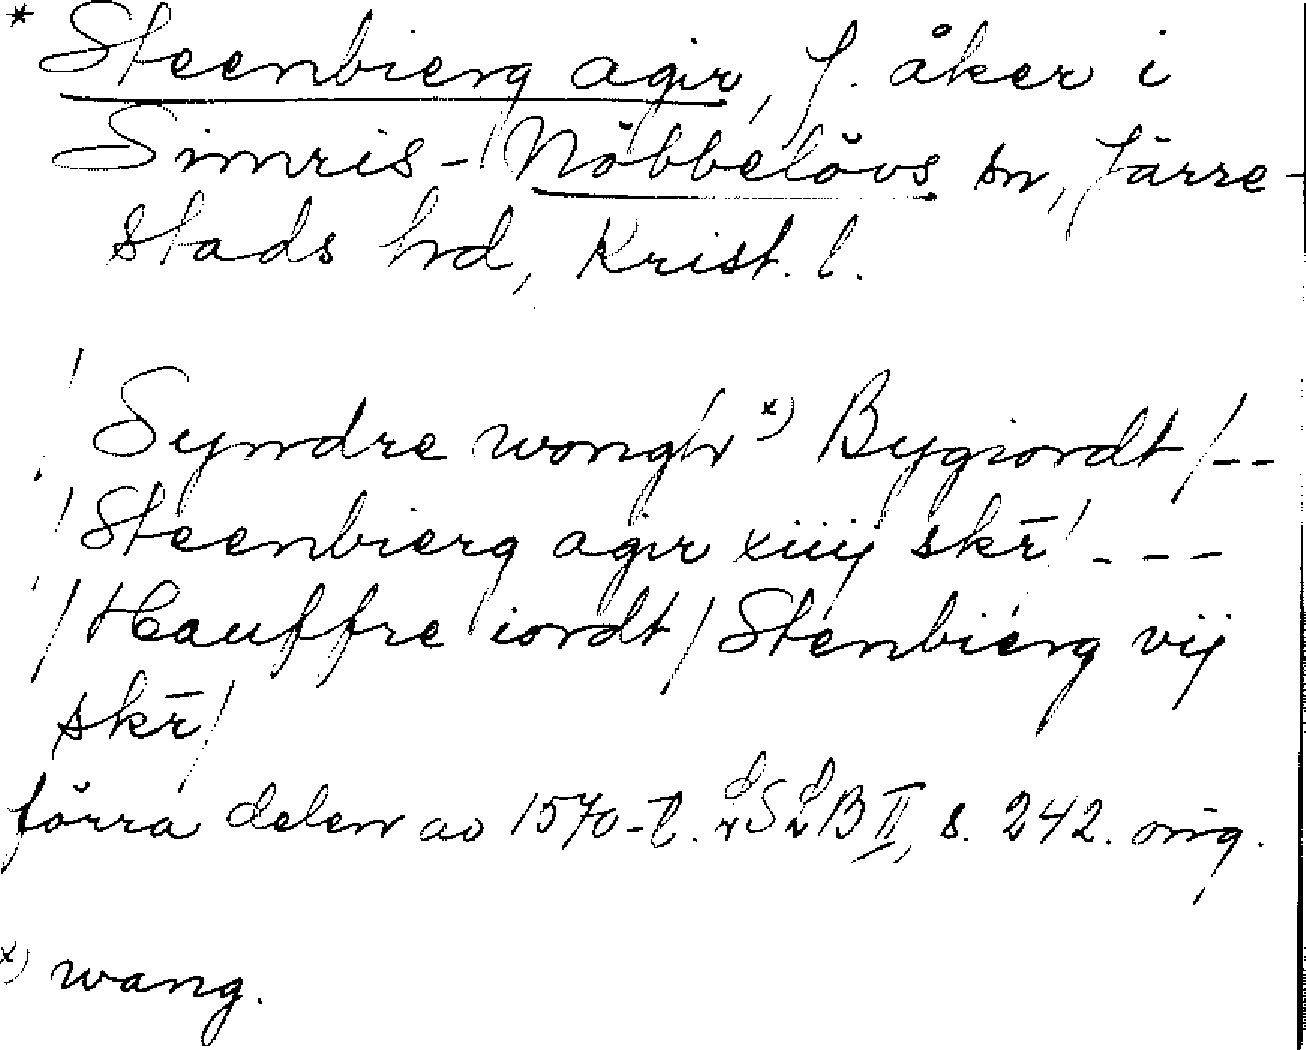 * Steenbierg agir, f. åker i
Simris-Nöbbelövs sn, Järre-
stads hd, Krist. l.
/ Syndre wongh x) Bygiordt /--
/ Steenbierg agir xiiij skr̄ /---
/ Hauffre iordt / Stenbierg vij
skr̄ /
förra delen av 1570-t. LSLB II, s. 242. orig.
x) wang.